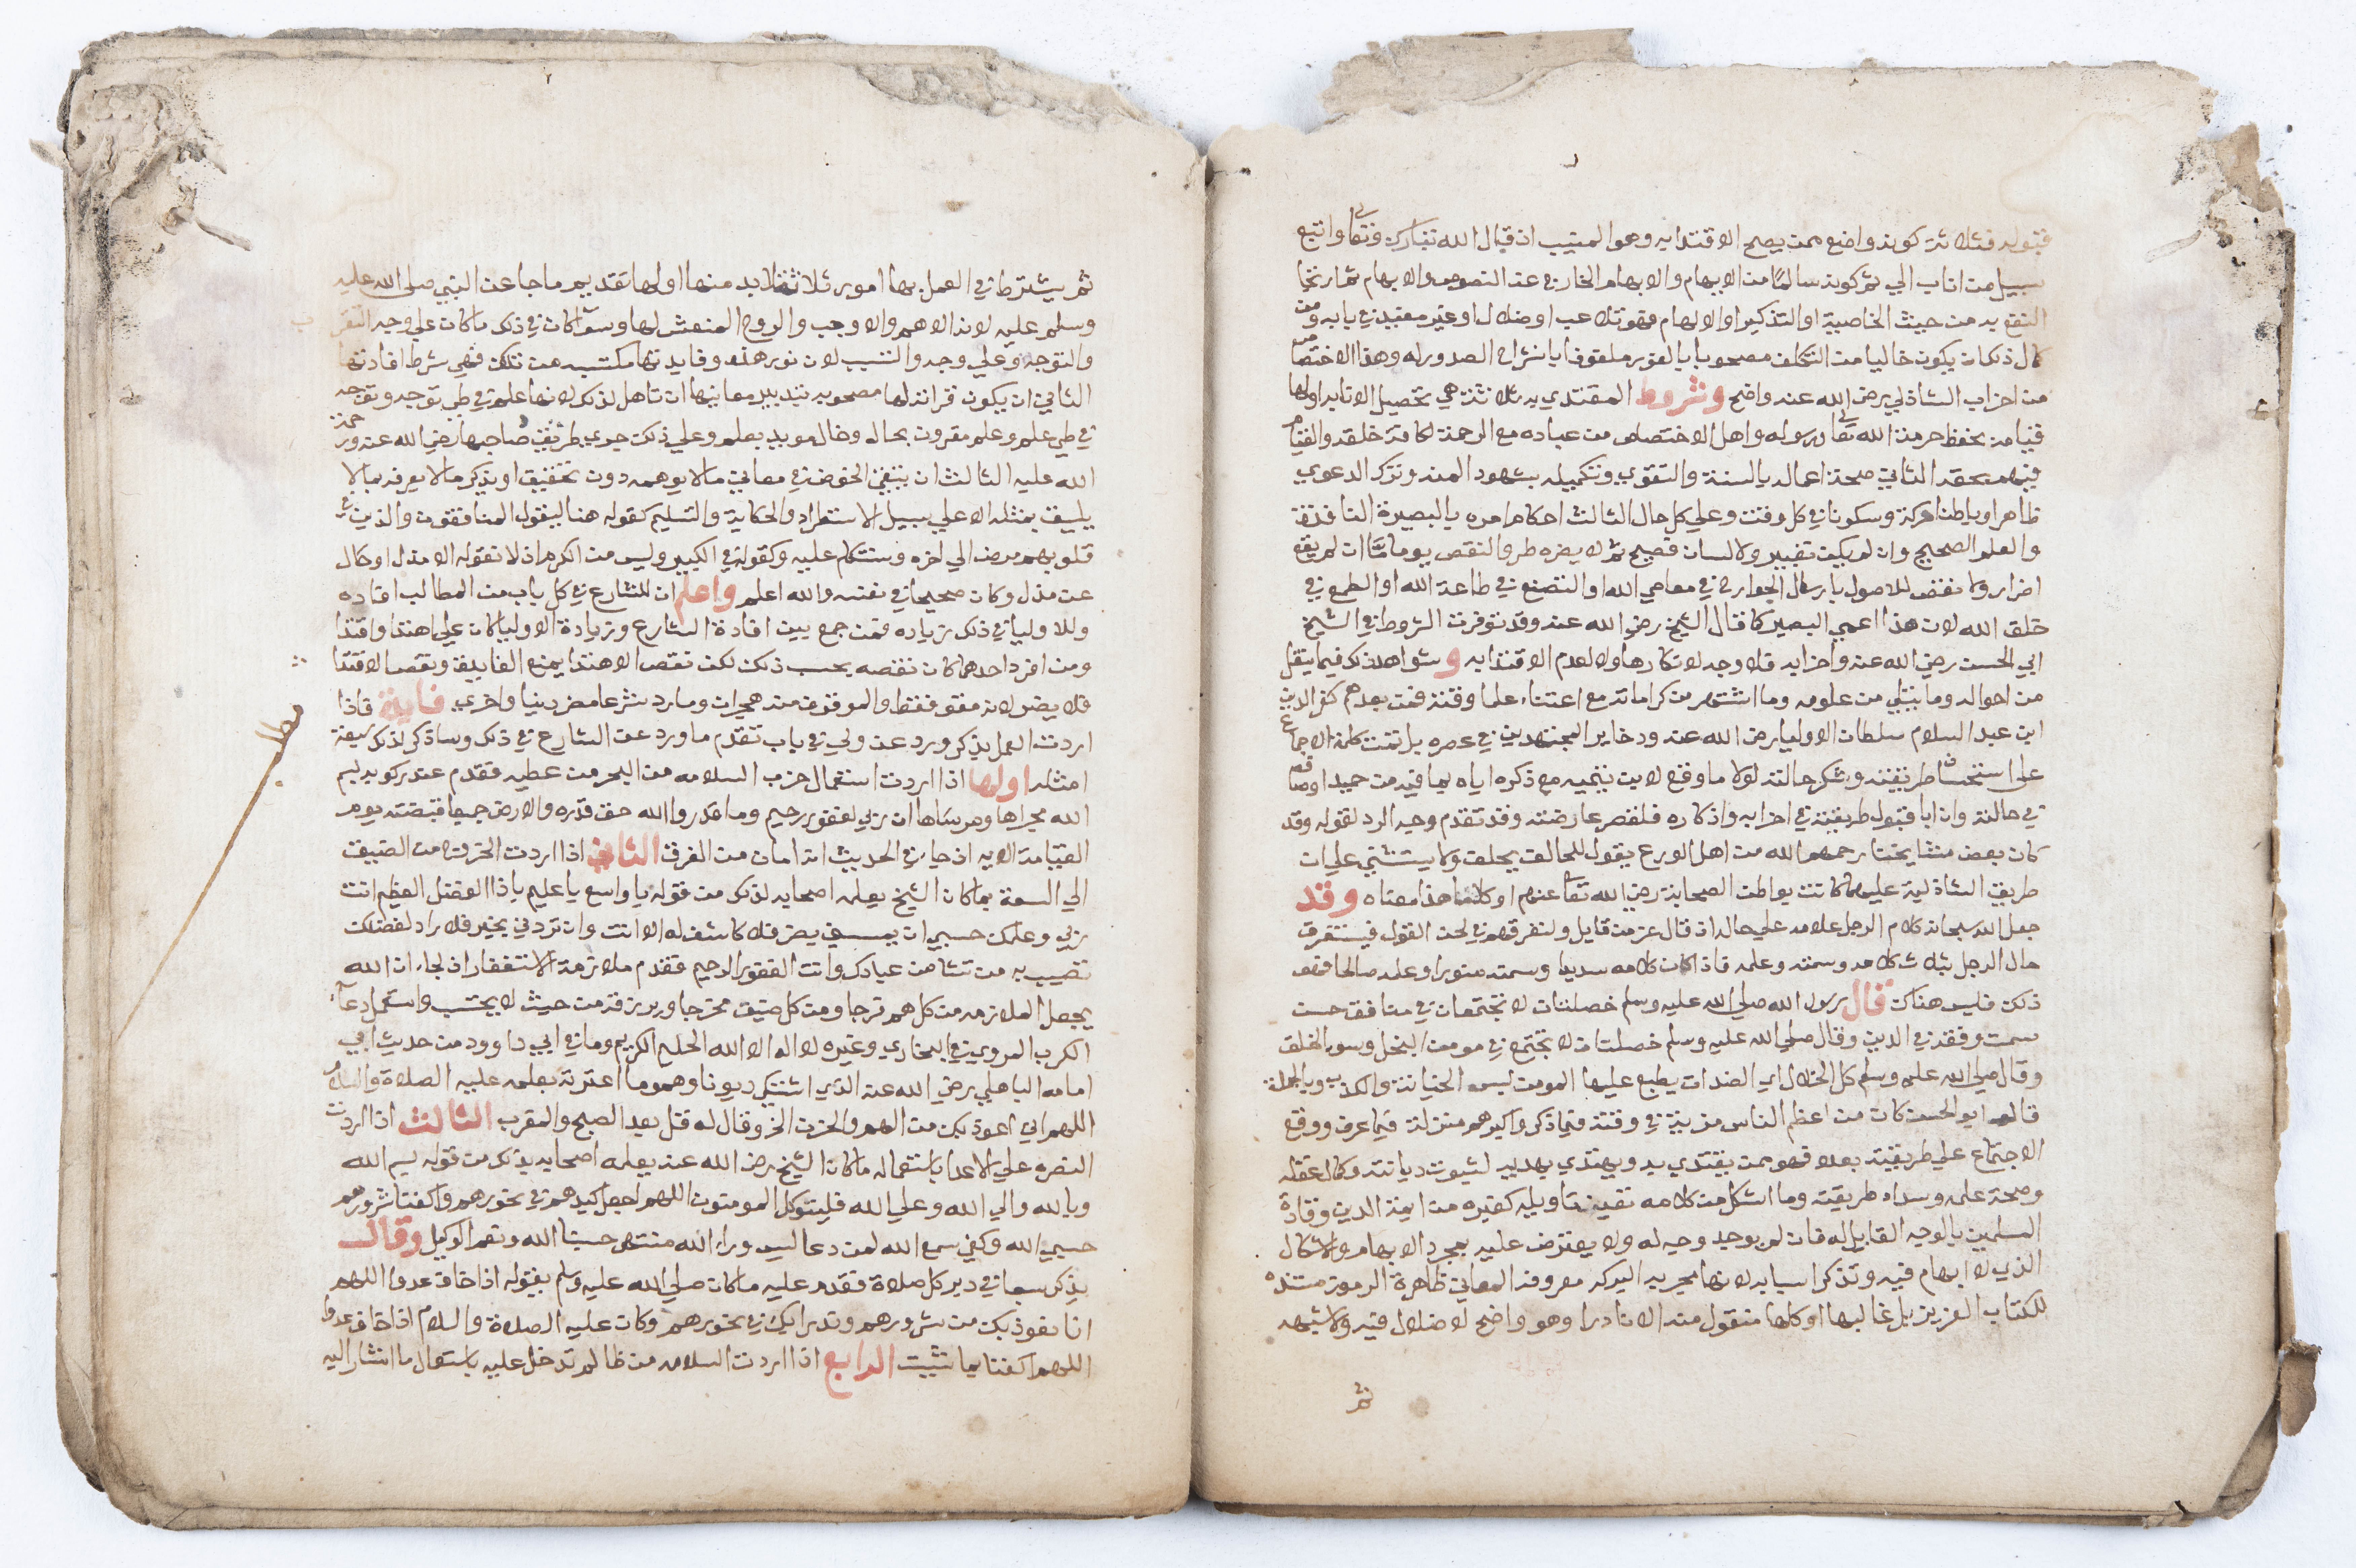 قبوله فثلاثة كونه واضع ممن يصح الاقتدا به وهو المنيب اذ قال الله تبارك وتعالى واتبع
سبيل من اناب الي ثم كونه سالما من الابهام والايهام الخارج عن النصوص والابهام ثم ارتجا
النفع به من حيث الخاصية او التذكير او الالهام فهو تلاعب او ضلال او غير مفيد في بابه ومن
كمال ذلك ان يكون خاليا من التكلف مصحوبا بالفور ملفوفا بانشراح الصدور له وهذا الاختصاص
من احزاب الشاذلي رضي الله عنه واضح وشروط المقتدي به ثلاثة هي تحصيل الاتايد اولها
قيامه بحفظ حرمة الله تعالى ورسوله واهل الاختصاص من عباده مع الرحمة لكافة خلقه والقيام
فيهم بحقه الثاني صحة اعماله بالسنة والتقوي وتكميله بشهود المنه وترك الدعوي
ظاهرا وباطنا حركة وسكونا في كل وقت وعلي كل حال الثالث احكام امره بالبصيرة النافذة
والعلم الصحيح وان لم يكن تفيير ولا لسان فصيح ثم لا يضره طرو النقص يوما ما ان لم يقع
اضرار ولا نقض للاصول بارسال الجوارح في معاصي الله والتصنع في طاعة الله او الطمع في
خلق الله لان هذا اعمي البصير كما قال الشيخ رضي الله عنه وقد توفرت الشروط في الشيخ
ابي الحسن رضي الله عنه واحزابه فلا وجه لانكارها ولا لعدم الاقتدا به وشواهد ذلك فيما ينقل
من احواله وما ينبئي من علومه وما اشتهر من كراماته مع اعتناء علما وقته فمن بعدهم كعز الدين
ابن عبد السلام سلطان الاوليا رضي الله عنه ودخاير المجتهدين في عصره بل تمت كلمة الاجماع
على استحسان طريقته وشكر حالته لولا ما وقع لابن تيمية مع ذكره اياه بما فيه من حميد اوصافه
في حالته وان ابا قبول طريقته في احزابه واذكاره فلقصر عارضته وقد تقدم وجه الرد لقوله وقد
كان بعض مشايخنا رحمهم الله من اهل الورع يقول للحالف يحلف ولا يستثني علي ان
طريق الشاذلية عليها كانت بواطن الصحابة رضي الله تعالى عنهم او كلاما هذا معناه وقد
جعل الله سبحانه كلام الرجل علامه علي حاله اذ قال عز من قايل ولتعرفنهم في لحن القول فيستعرف
حال الرجل بثلاث كلامه وسمته وعمله فاذا كان كلامه سديدا وسمته منورا وعمله صالحا فهو
ذلك فليس هناك قال رسول الله صلي الله عليه وسلم خصلتان لا تجتمعان في منافق حسن
سمت وفقه في الدين وقال صلي الله عليه وسلم خصلتان لا تجتمع في مومن البخل وسوء الخلق
وقال صلي الله عليه وسلم كل الخلال اي الصفات يطبع عليها المومن ليس الخيانة والكذب وبالجملة
فالامام ابو الحسن كان من اعظم الناس مزية في وقته فيما ذكر واكبرهم منزلة فيما عرف ووقع
الاجتماع علي طريقته بعده فهو ممن يقتدي به ويهتدي بهديه لثبوت ديانته وكمال عقله
وصحة علمه وسداد طريقته وما اشكل من كلامه تعين تاويله كغيره من ايمة الدين وقادة
المسلمين بالوجه القابل له فان لم يوجد وجه له ولا يعترض عليه بمجرد الابهام والاشكال
الذي لا ابهام فيه وتذكر اسبابه لانها مجربه البركه معروفة المعاني ظاهرة الرموز مستنده
للكتاب العزيز بل غالبها او كلها منقول منه الا نادرا وهو واضح لا ضلال فيه ولا شبهه
ثم
ثم يشترط في العمل بها امور ثلاثة لا بد منها اولها تقديم ما جا عن النبي صلى الله عليه
وسلم عليه لانه الاهم والاوجب والروح المنعش لها وسوا كان في ذلك ما كان علي وجه التقرب
والتوجه وعلي وجه والتسبب لان نور هذه وفايدتها مكتسبه من تلك فهي شرط افادتها
الثاني ان يكون قرانتها مصحوبه بتدبير معانيها ان تاهل لذلك لانها علم في طي توجه وتوجه
في طي علم وعلم مقرون بحال وحال مويد بعلم وعلي ذلك جري طريق صاحبها رضي الله عنه ورحمة
الله عليه الثالث ان ينتفي الخوض في معاني ما لا يوهمه دون تحقيق او يذكر ما لا يعرفه بما لا
يليق بمثله الا علي سبيل الاستطراد والحكاية والتسليم كقوله هنا ليقول المنافقون والذين في
قلوبهم مرض الي اخره وسنتكلم عليه وكقوله في الكبير وليس من الكرم اذ لا نقوله الا مدل او حال
عن مدل وكان صحيحا في نفسه والله اعلم واعلم ان للشارع في كل باب من المطالب افاده
وللاوليا في ذلك زياده فمن جمع بين افادة الشارع وزيادة الاوليا كان علي اهتدا واقتدا
ومن افرد احدهما كان نقصه بحسب ذلك لكن نقص الاهتدا يمنع الفايدة ونقص الاقتدا
فلا يضر لانه مقو فقط والموقوف منه هجران وما رد شرعا مضر دنيا واخري فايدة فاذا
اردت العمل بذكر ورد عن ولي في باب تقدم ما ورد عن الشارع في ذلك وساذكر لذلك سبعة
امثله اولها اذا اردت استعمال حزب السلامه من البحر من عطبه فقدم عند ركوبه بسم
مطلب
الله مجراها ومرساها ان ربي لغفور رحيم وما قدروا الله حق قدره والارض جميعا قبضته يوم
القيامة الايه اذ جاء في الحديث انه امان من الغرق الثاني اذا اردت الخروج من الضيق
الي السعة بما كان الشيخ يعلمه اصحابه لذلك من قوله يا واسع يا عليم يا ذا الفضل العظيم انت
ربي وعلمك حسبي ان يمسسني بضر فلا كاشف له الا انت وان تردني بخير فلا راد لفضلك
تصيب به من تشا من عبادك وانت الغفور الرحيم فقدم ملازمة الاستغفار اذ جاء ان الله
يجعل لملازمه من كل هم فرجا ومن كل ضيق مخرجا ويرزقه من حيث لا يحتسب واستعمل دعاء
الكرب المروي في البخاري وغيره لا اله الا الله الحليم الكريم وما في ابي داوود من حديث ابي
امامه الباهلي رضي الله عنه الذي اشتكي ديونا وهموما اعترته بعلمه عليه الصلاة والسلام
اللهم اني اعوذ بك من الهم والحزن الخ وقال له قل بعد الصبح والمغرب الثالث اذا اردت
النصره علي الاعدا باستعماله ما كان الشيخ رضي الله عنه يعلمه اصحابه بذلك من قوله بسم الله
وبالله والي الله وعلي الله فليتوكل المومنون اللهم اجعل كيدهم في نحورهم واكفنا شرورهم
حسبي الله وكفي سمع الله لمن دعا ليس وراء الله منتهي حسبنا الله ونعم الوكيل وقال
يذكر سبعا في دبر كل صلاة فقدم عليه ما كان صلي الله عليه وسلم يقوله اذا خاف عدوا اللهم
انا نعوذ بك من شرورهم وندرا بك في نحورهم وكان عليه الصلاة والسلام اذا خاف عدوا
اللهم اكفنا بما شئت الرابع اذا اردت السلامه من ظالم تدخل عليه باستعمال ما اشار اليه